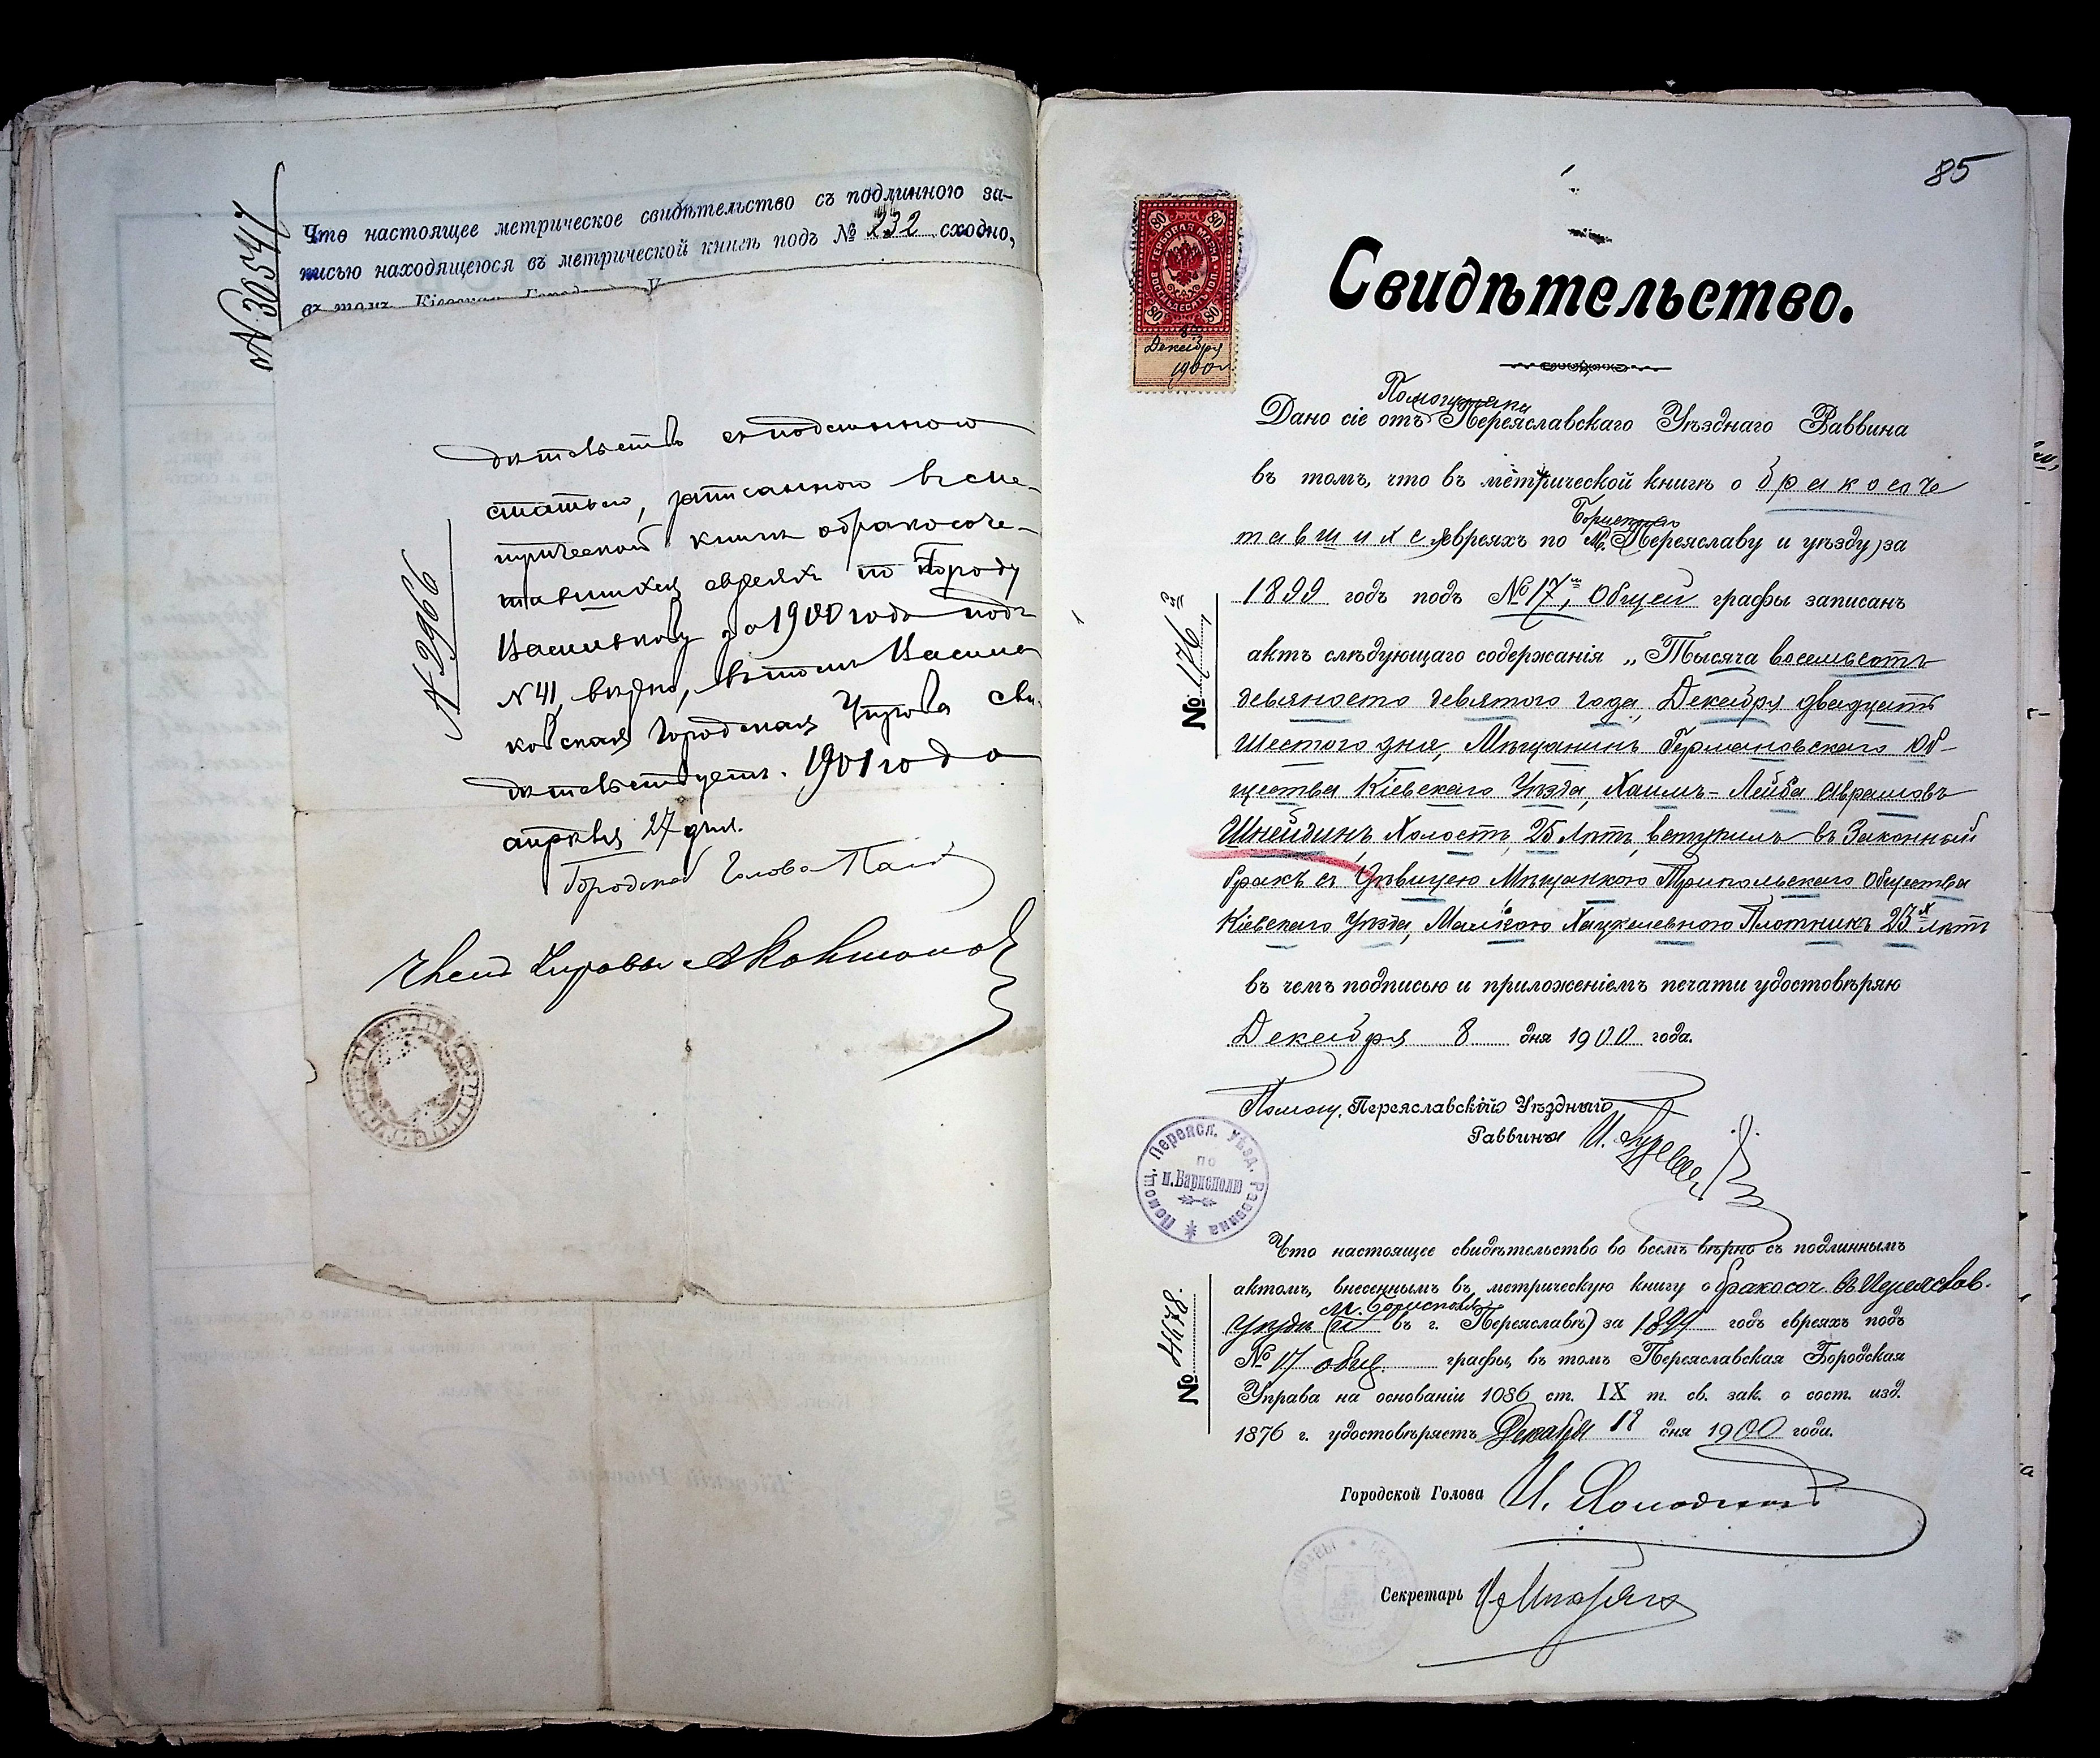 № 30547
Что настоящее метрическое свидѣтельство съ подлинною за-
писью находящеюся въ метрической книгѣ подъ № 232 сходно,
въ томъ Кіевская
№ 2966
дѣтельствъ съ подлинною
статьею, записанною въ ме-
трической книгѣ о бракосоче-
тавшихся евреяхъ по городу
Василькову за 1900 годъ подъ
№ 41, вѣрно, въ томъ Василь-
ковская Городская Управа сви-
дѣтельствуетъ. 1901 года
апрѣля 27 дня.
Городской Голова
Членъ Управы
85
80 80
ГЕРБОВАЯ МАРКА
ВОСЕМЬДЕСЯТЪ КОП.
80 80
8
Декабря
1900 г.
Свидѣтельство.
Помощника
Дано сіе отъ Переяславскаго Уѣзднаго Раввина
въ томъ, что въ метрической книгѣ о бракосоче
тавшихся евреяхъ по м. Борисполю Переяславу и уѣзду) за
1899 годъ подъ № 17 м, Общей графы записанъ
№ 1276
актъ слѣдующаго содержанія „Тысяча восемьсотъ
девяносто девятого года, Декабря двадцать
шестого дня, Мѣщанинъ Германовскаго Об-
щества Кіевскаго Уѣзда, Хаимъ-Лейба Аврамовъ
Шнейдинъ, Холостъ, 25 лѣтъ, вступилъ въ Законный
бракъ съ Дѣвицею Мѣщанкою Трипольскаго Общества
Кіевскаго Уѣзда, Малкою Хацкелевною Плотникъ 23х лѣтъ
въ чемъ подписью и приложеніемъ печати удостовѣряю
Декабря 8 дня 1900 года.
Помощ. Переяславскій Уѣздный
Раввинъ И.
Помощ. Переясл. Уѣзд. Раввина
по
м. Барисполю
Что настоящее свидѣтельство во всемъ вѣрно съ подлиннымъ
актомъ, внесеннымъ въ метрическую книгу о бракосоч. въ Переяслав.
м. Борисполь
уѣздѣ (и въ г. Переяславѣ) за 1899 годъ евреяхъ подъ
№ 17 общ. графы, въ томъ Переяславская Городская
№ 4978.
Управа на основаніи 1086 ст. IX т. св. зак. о сост. изд.
1876 г. удостовѣряетъ Декабря 11 дня 1900 года.
Городской Голова
Секретарь